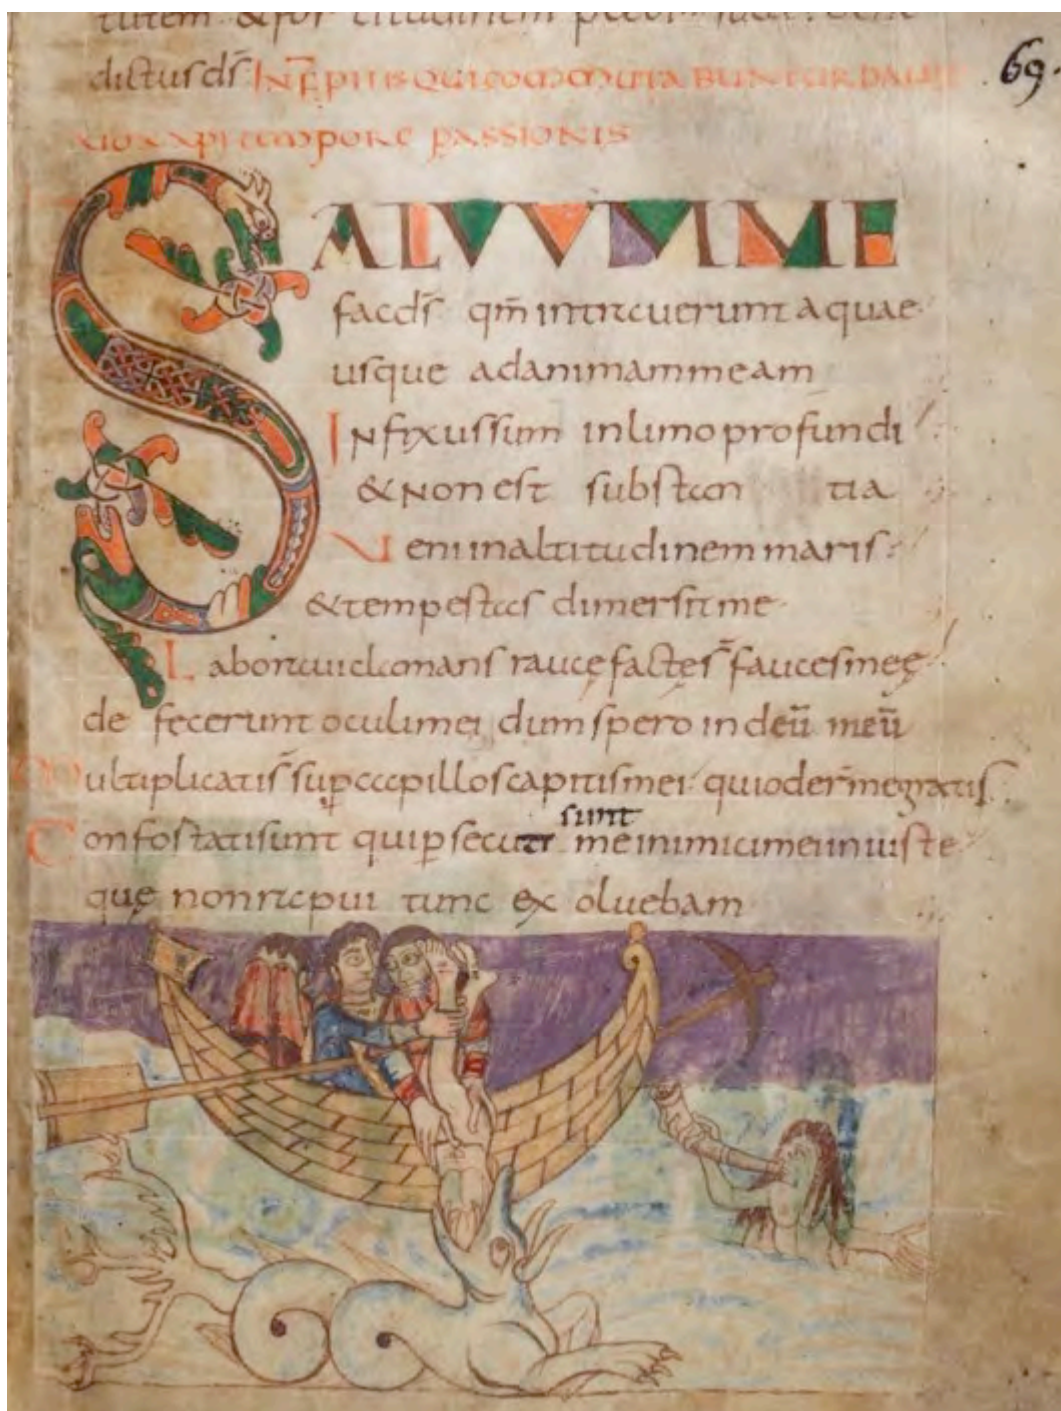 tutem & for titudinem plebi suae. bene
dictus d̄s INF̄ PIIIS QUI COMMUTABUNTUR DAUI
XPI TEMPORE PASSIONIS
69.
SALVUM ME
fac d̄s qm̄ intrauerunt aquae
usque ad animam meam
Infixus sum in limo profundi
& non est substan tia
Veni in altitudinem maris
& tempestas dimersit me
Laboraui clamans raucę factę s̄ fauces meę
defecerunt oculi mei dum spero in deū meū
Multiplicati s̄ sup capillos capitis mei qui oder̄ me gratis
sunt
Confortati sunt qui p secuti me inimici mei iniuste
quę non rapui tunc exoluebam